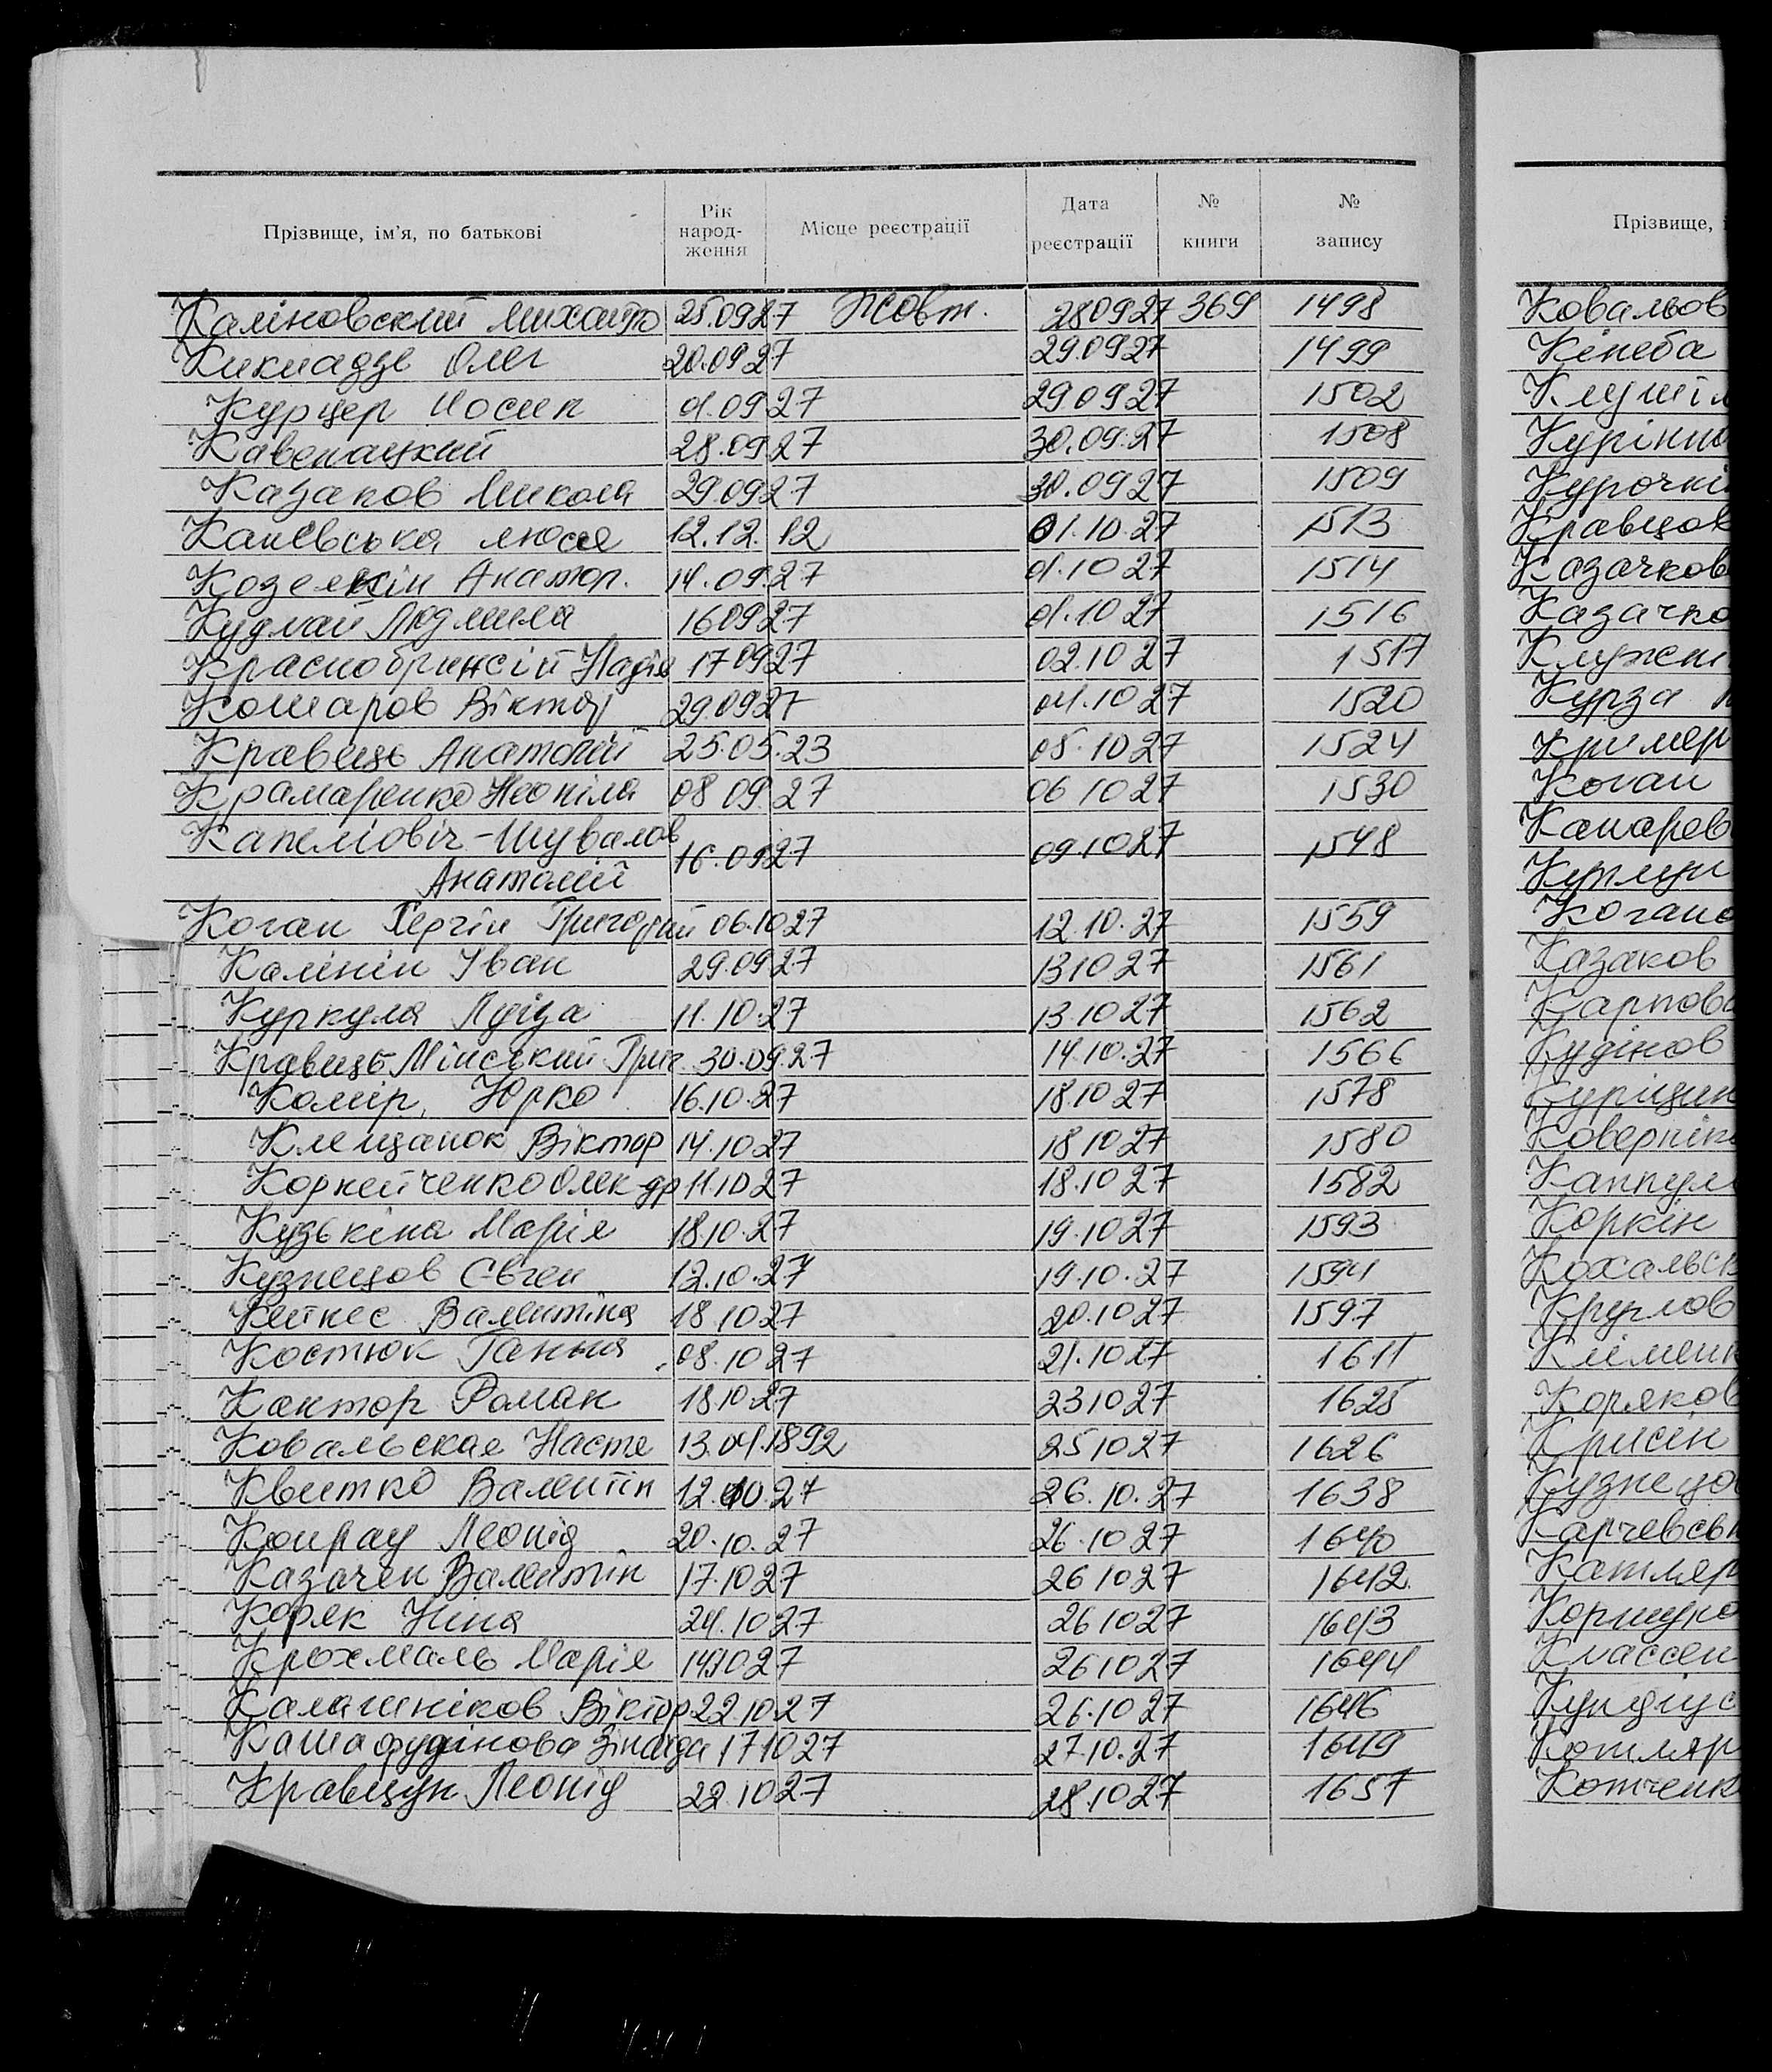 Прізвище, ім'я, по батькові Рік народ-ження Місце реєстрації Дата реєстрації № книги № запису
Каліновский Михайло 25.09.27 Жовт. 28 09 27 369 1498
Кикнадзе Олег 20.09 27 29.09 27 1499
Курцер Иосип 01.09 27 29 09 27 1502
28.09 27 30.09.27 1508
Казаков Микола 29.09 27 30.09 27 1509
Канєвська Люся 12.12. 12 01.10.27 1513
Козелкін Анатол. 14.09.27 01.10 27 1514
Кудлай Людмила 16 09 27 01.10 27 1516
Надія 17 09 27 02.10 27 1517
Комаров Віктор 29.09 27 04.10 27 1520
Кравець Анатолій 25.05.23 05.10 27 1524
Крамаренко Неоніла 08 09 27 06 10 27 1530
Капеліовіч-Шувалов
Анатолій 16.09 27 09.10 27 1548
Коган Григорій 06.10 27 12.10.27 1559
Калінін Іван 29.09 27 13 10 27 1561
Куркула Луіза 11.10.27 13.10 27 1562
Кравець-Мінський Григ. 30.09.27 14.10.27 1566
Комір, Юрко 16.10.27 18.10 27 1578
Клещанок Віктор 14.10 27 18 10 27 1580
Корнейченко Олек-др 11.10 27 18.10 27 1582
Кузькіна Марія 18.10.27 19.10 27 1593
Кузнецов Євген 12.10.27 19.10.27 1594
Кейнес Валентіна 18 10 27 20.10 27 1597
Костюк Ганна 08.10 27 21.10 27 1611
Кантор Роман 18.10.27 23 10 27 1625
Ковальская Настя 13.04.1892 25 10 27 1626
Квитко Валентін 12.10.27 26.10.27 1638
Конрад Леонід 20.10.27 26.10 27 1640
Казачек Валентін 17.10 27 26 10 27 1642
Коряк Ніна 24.10 27 26 10 27 1643
Крохмаль Марія 14.10 27 26 10 27 1644
Калашніков Віктор 22.10 27 26.10 27 1646
Камафудінова Зінаїда 17 10 27 27.10.27 1649
Кравцун Леонід 22.10 27 28.10 27 1657
Прізвище,
Ковальов
Кінеба
Курочкі
Кравцов
Казачков
Казачко
Курза
Кример
Коган
Кап
Казаков
Карпов
Кудінов
Коркін
Кохальськ
Круглов
Коряков
Крисін
Кузнецо
Карчевськ
Котляр
Классен
Котляр